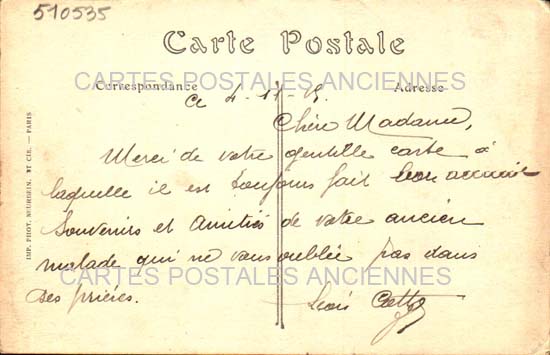 510535
Carte Postale
CARTES POSTALES ANCIENNES
Correspondance
Adresse
Ce 4-11-
Chère Madame,
Merci de votre gentille carte à
laquelle il est toujours fait bon accueil
Souvenirs et Amitiés de votre ancien
malade qui ne vous oublie pas dans
ses prières.
CARTES POSTALES ANCIENNES
IMP. PHOT. NEURDEIN ET CIE. — PARIS